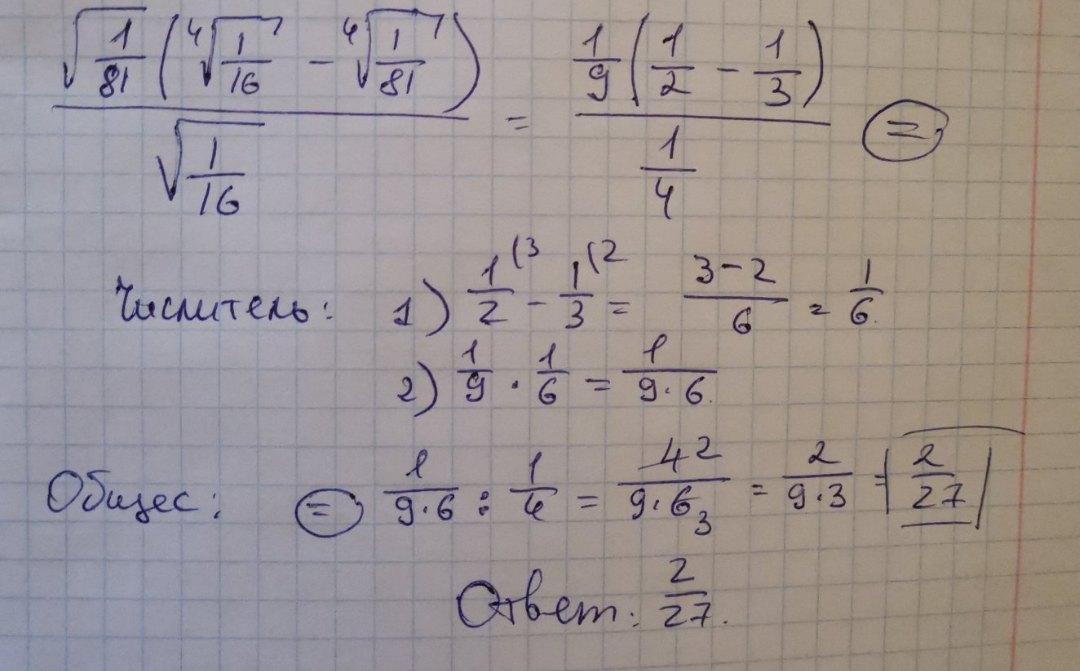 √(1/81) (⁴√(1/16) − ⁴√(1/81)) / √(1/16) = 1/9 (1/2 − 1/3) / 1/4 =
Числитель: 1) 1/2 (3 − 1/3 (2 = 3−2/6 = 1/6
2) 1/9 · 1/6 = 1/9·6
Общес: = 1/9·6 : 1/4 = 4 2/9·6 3 = 2/9·3 = 2/27
Ответ: 2/27.